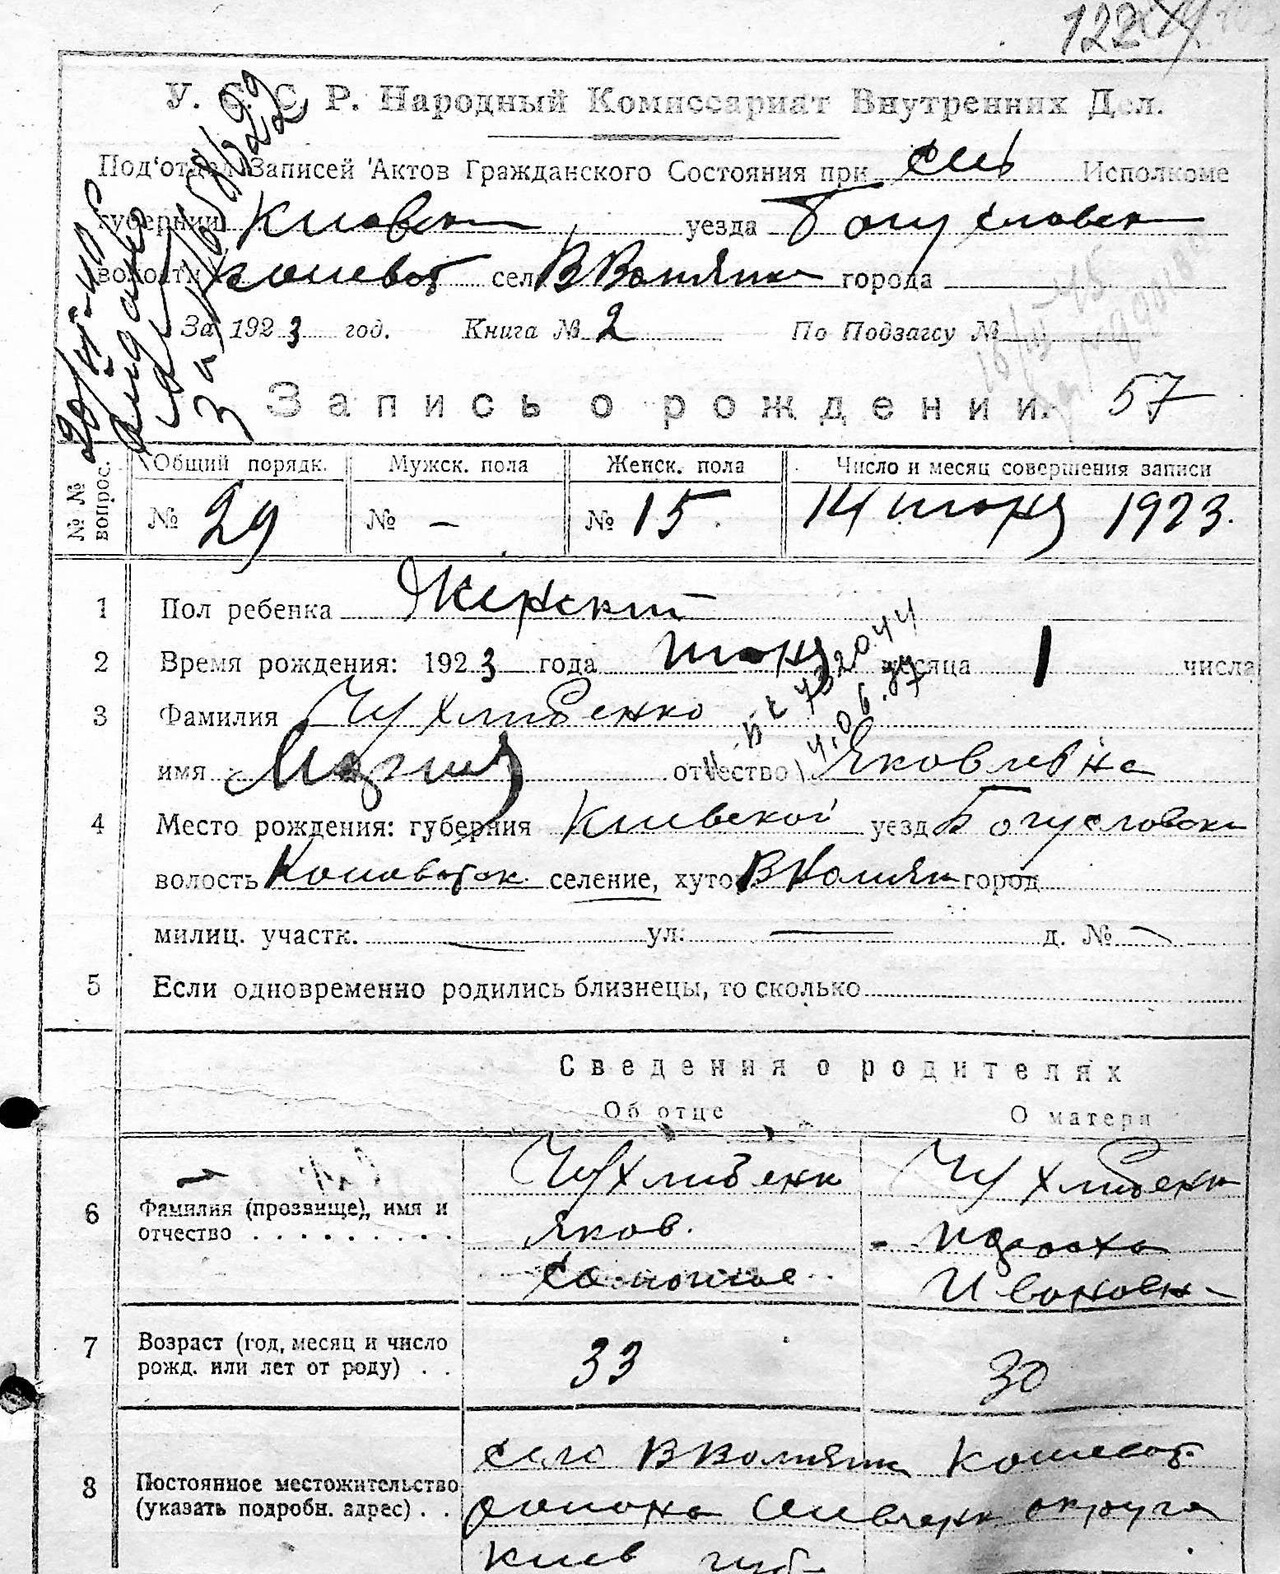 122
У. С. С. Р. Народный Комиссариат Внутренних Дел.
Под'отдел Записей Актов Гражданского Состояния при сель Исполкоме
губернии Киевск уезда Богуславск
волости Кошеват сел
города
За 1923 год. Книга № 2 По Подзагсу №
Запись о рождении. 57
№ № вопрос. Общий порядк. Мужск. пола Женск. пола Число и месяц совершения записи
№ 29 № - № 15. 14 июня 1923.
1 Пол ребенка Женский
2 Время рождения: 1923 года июня месяца 1 числа
3 Фамилия Чухлибенко
имя Мария отчество Яковлевна
4 Место рождения: губерния Киевской уезд Богуславски
волость Кошеватск. селение, хутор город
милиц. участк. — ул. — д. № —
5 Если одновременно родились близнецы, то сколько
Сведения о родителях
Об отце О матери
6 Фамилия (прозвище), имя и отчество Чухлибенк Чухлибенк
Яков.
Ивановн
7 Возраст (год, месяц и число рожд. или лет от роду) 33 30
8 Постоянное местожительство (указать подробн. адрес) село Кошеват
района Шевченк округа
Киев губ